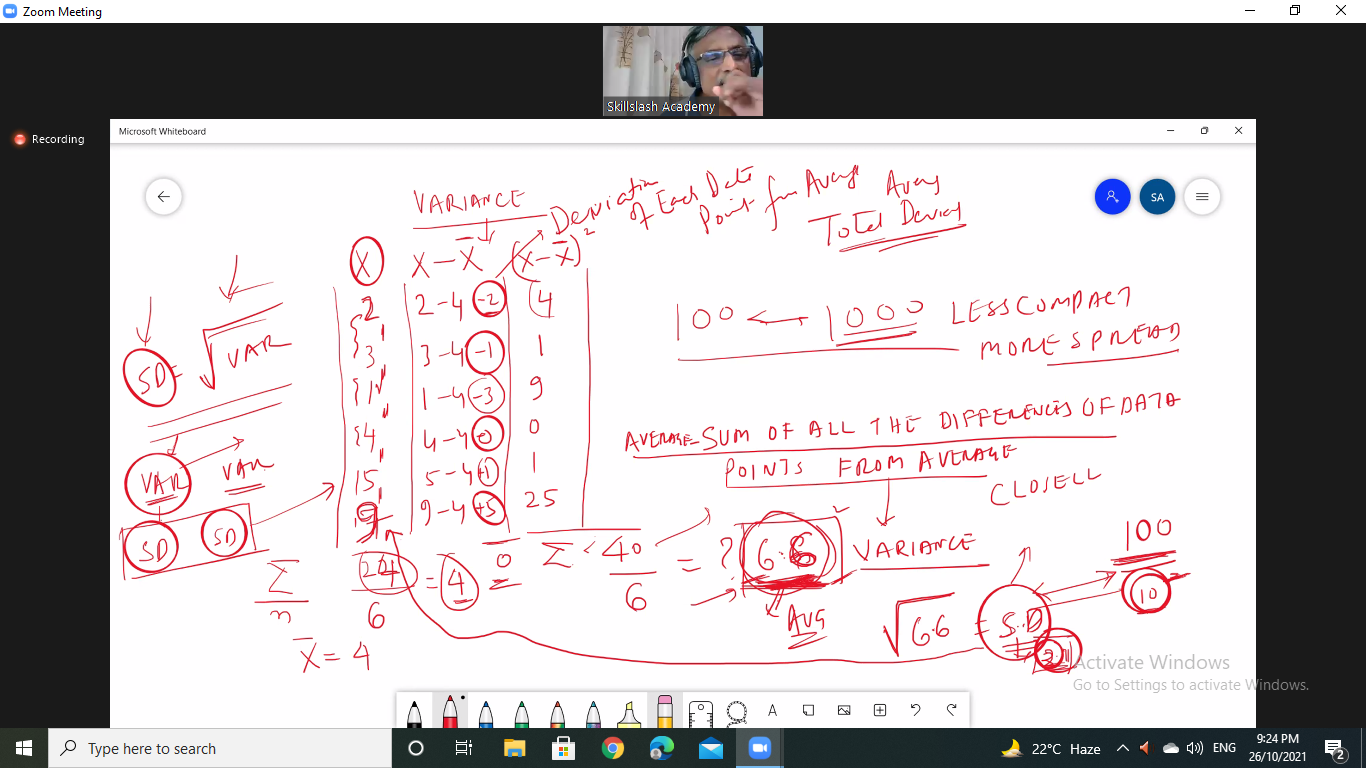 Zoom Meeting
Skillslash Academy
Recording
Microsoft Whiteboard
SA
VARIANCE
Deviation of Each Data Point from Average
Total
X
X - X̄
(X - X̄)²
2
2-4 -2
4
3
3-4 -1
1
1
1-4 -3
9
4
4-4 0
0
5
5-4 +1
1
9
9-4 +5
25
SD = √VAR
VAR VAR
SD SD
Σ
n
24
6
= 4
0
Σ 40
6
= ?
AVG
X̄ = 4
100 ← 1000 LESS COMPACT
MORE SPREAD
AVERAGE SUM OF ALL THE DIFFERENCES OF DATA
POINTS FROM AVERAGE
VARIANCE
√6.6 = S.D
100
10
Activate Windows
Go to Settings to activate Windows.
A
Type here to search
22°C Haze
ENG
9:24 PM
26/10/2021
2